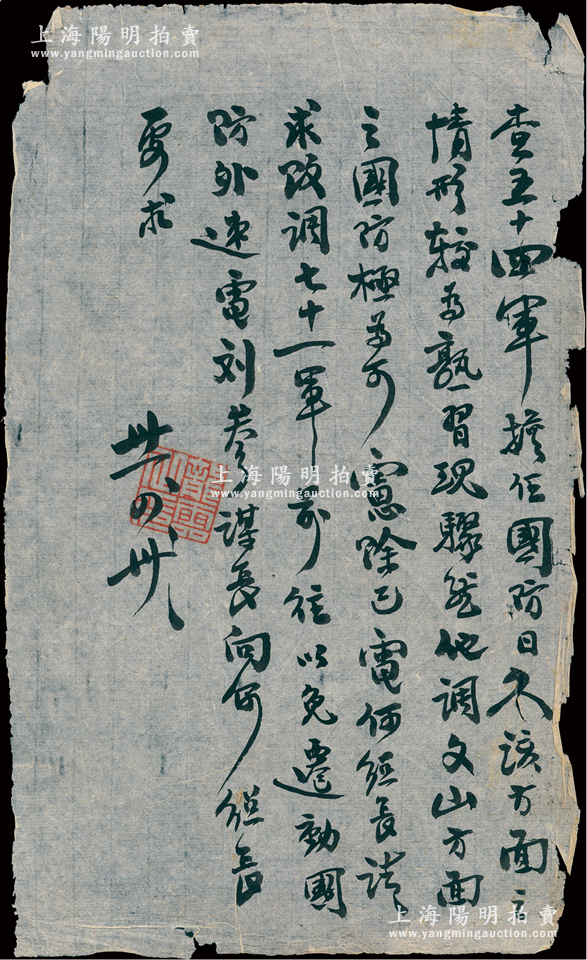 上海陽明拍賣
www.yangmingauction.com
查五十四軍擔任國防日久該方面之
情形較為熟習現驟然他調文山方面
之國防極為可慮除已電何總長請
求改調七十一軍前往以免遷動國
防外速電刘參謀長向何總長
要求
卅、四、卅、
上海陽明拍賣
www.yangmingauction.com
上海陽明拍賣
www.yangmingauction.com